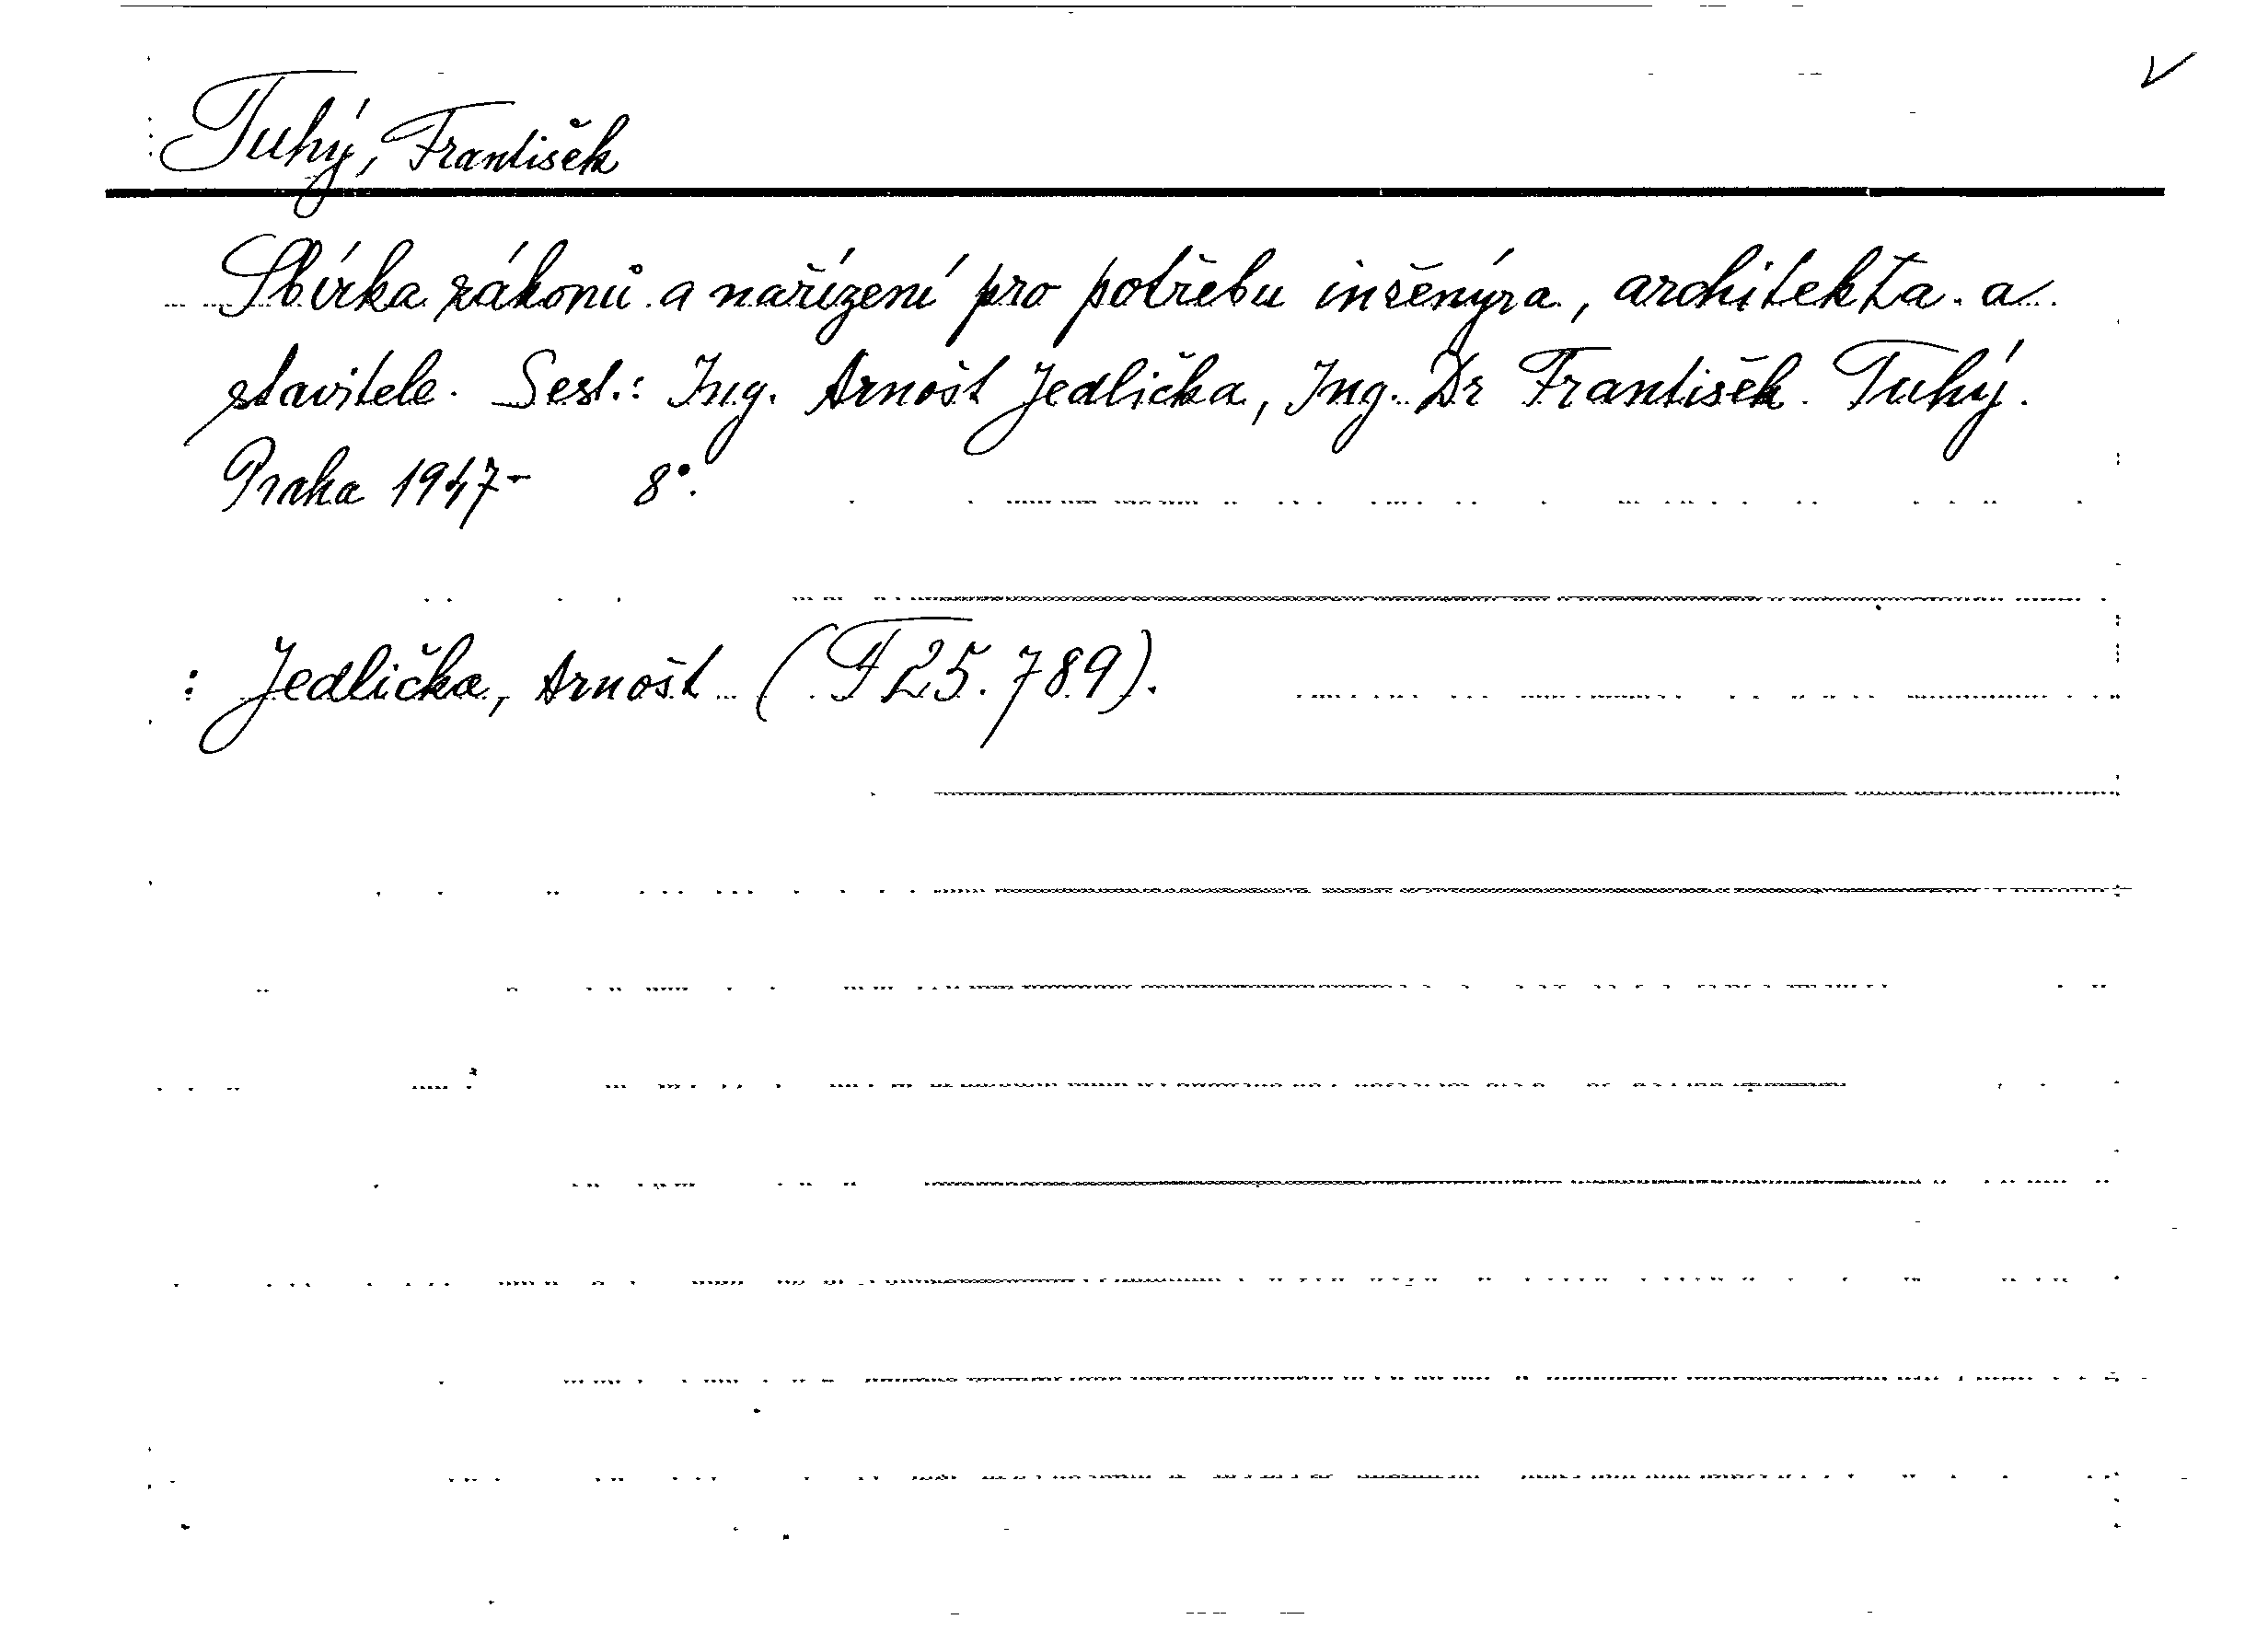 Tuhý, František
Sbírka zákonů a nařízení pro potřebu inženýra, architekta a
stavitele. Sest.: Ing. Arnošt Jedlička, Ing. Dr František Tuhý.
Praha 1947- 8°.
: Jedlička, Arnošt (F 25.789).